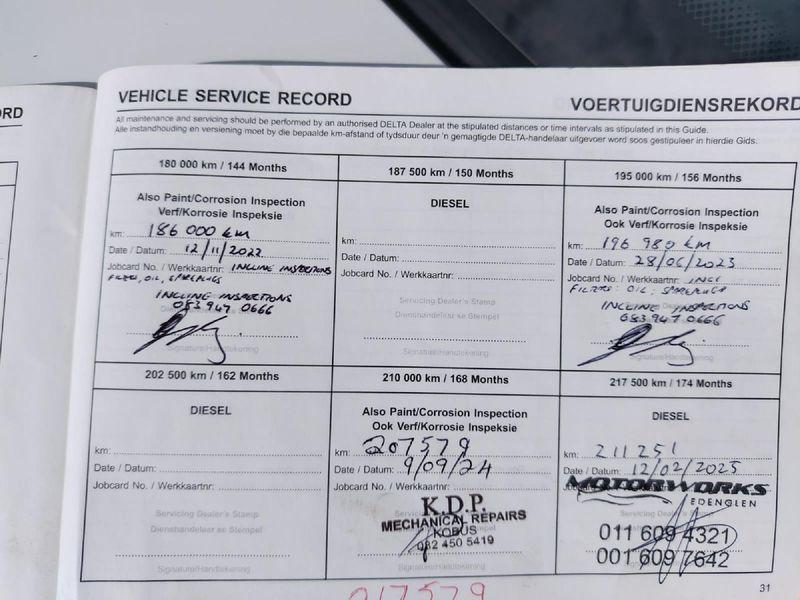 RD
VEHICLE SERVICE RECORD
VOERTUIGDIENSREKORD
All maintenance and servicing should be performed by an authorised DELTA Dealer at the stipulated distances or time intervals as stipulated in this Guide.
Alle instandhouding en versiening moet by die bepaalde km-afstand of tydsduur deur 'n gemagtigde DELTA-handelaar uitgevoer word soos gestipuleer in hierdie Gids.
180 000 km / 144 Months
Also Paint/Corrosion Inspection
Verf/Korrosie Inspeksie
km: 186 000 km
Date / Datum: 12/11/2022
Jobcard No. / Werkkaartnr: INCLINE INSPECTIONS
FILTERS, OIL, SPARKPLUGS
INCLINE INSPECTIONS
083 947 0666
Signature/Handtekening
187 500 km / 150 Months
DIESEL
km:
Date / Datum:
Jobcard No. / Werkkaartnr:
Servicing Dealer's Stamp
Dienshandelaar se Stempel
Signature/Handtekening
195 000 km / 156 Months
Also Paint/Corrosion Inspection
Ook Verf/Korrosie Inspeksie
km: 196 980 km
Date / Datum: 28/06/2023
Jobcard No. / Werkkaartnr:
FILTERS: OIL, SPARKPLUGS
INCLINE INSPECTIONS
083 947 0666
Signature/Handtekening
202 500 km / 162 Months
DIESEL
km:
Date / Datum:
Jobcard No. / Werkkaartnr:
Servicing Dealer's Stamp
Dienshandelaar se Stempel
Signature/Handtekening
210 000 km / 168 Months
Also Paint/Corrosion Inspection
Ook Verf/Korrosie Inspeksie
km: 207579
Date / Datum: 9/09/24
Jobcard No. / Werkkaartnr:
K.D.P.
MECHANICAL REPAIRS
KOBUS
082 450 5419
Signature/Handtekening
217 500 km / 174 Months
DIESEL
km: 211251
Date / Datum: 12/02/2025
MOTORWORKS
EDENGLEN
Servicing Dealer's Stamp
011 609 4321
001 609 7642
31
217579